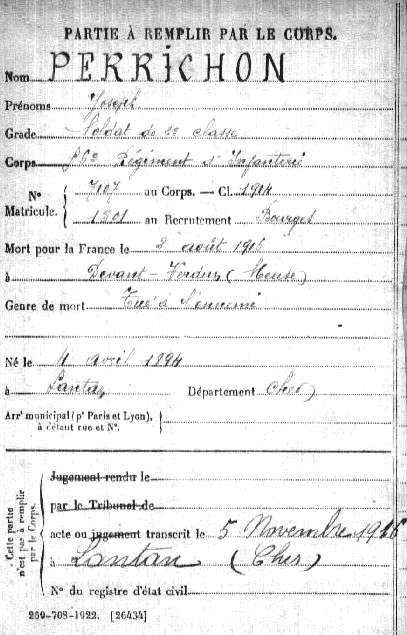 PARTIE À REMPLIR PAR LE CORPS.
Nom PERRICHON
Prénoms Joseph
Grade Soldat de 2e classe
Corps Régiment d'Infanterie
No Matricule. 7107 au Corps. — Cl. 1914
1501 au Recrutement Bourges
Mort pour la France le 3 août 1916
à Devant-Verdun (Meuse)
Genre de mort Tué à l'ennemi
Né le 4 avril 1894
à Lantan Département Cher
Arrt municipal (pr Paris et Lyon),
à défaut rue et No.
Cette partie
n'est pas à remplir
par le Corps.
Jugement rendu le
par le Tribunal de
acte ou jugement transcrit le 5 Novembre 1916
à Lantan (Cher)
No du registre d'état civil
269-708-1922. [26434]